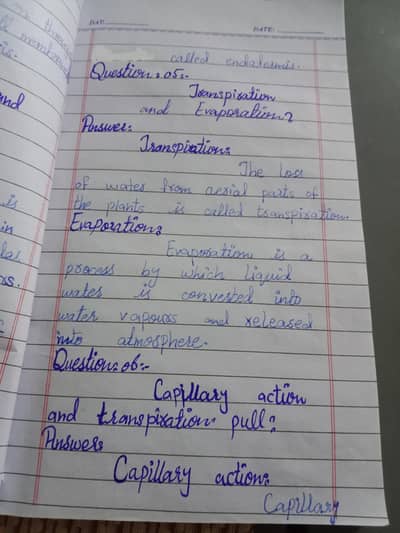 DATE:
called endodermis.
Question:05:
Transpiration
and Evaporation?
Answer:
Transpiration:
The Loss
of water from aerial parts of
the plants is called transpiration.
Evaporation:
Evaporation is a
process by which liquid
water is converted into
water vapours and released
into atmosphere.
Question:06:-
Capillary action
and transpiration pull?
Answer:
Capillary action:
Capillary